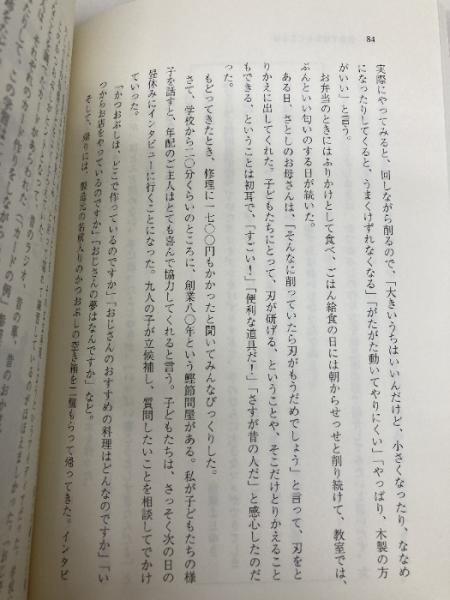 84
実際にやってみると、回しながら削るので、「大きいうちはいいんだけど、小さくなったり、ななめ
になったりしてくると、うまくけずれなくなる」「がたがた動いてやりにくい」「やっぱり、木製の方
がいい」と言う。
お弁当のときにはふりかけとして食べ、ごはん給食の日には朝からせっせと削り続けて、教室では、
ぷんといい匂いのする日が続いた。
ある日、さとしのお母さんは、「そんなに削っていたら刃がもうだめでしょう」と言って、刃をと
りかえに出してくれた。子どもたちにとって、刃が研げる、ということや、そこだけとりかえること
もできる、ということは初耳で、「すごい！」「便利な道具だ！」「さすが昔の人だ」と感心したのだ
った。
もどってきたとき、修理に一七〇〇円もかかったと聞いてみんなびっくりした。
さて、学校から二〇分くらいのところに、創業八〇年という鰹節問屋がある。私が子どもたちの様
子を話すと、年配のご主人はとても喜んで協力してくれると言う。子どもたちは、さっそく次の日の
昼休みにインタビューに行くことになった。九人の子が立候補し、質問したいことを相談してでかけ
「かつおぶしは、どこで作っているのですか」「おじさんのおすすめの料理はどんなのですか」「い
つからお店をやっているのですか」「おじさんの夢はなんですか」など。
そして、帰りには、製造元の名前入りのかつおぶしの空き箱を二個もらって帰ってきた。インタビ